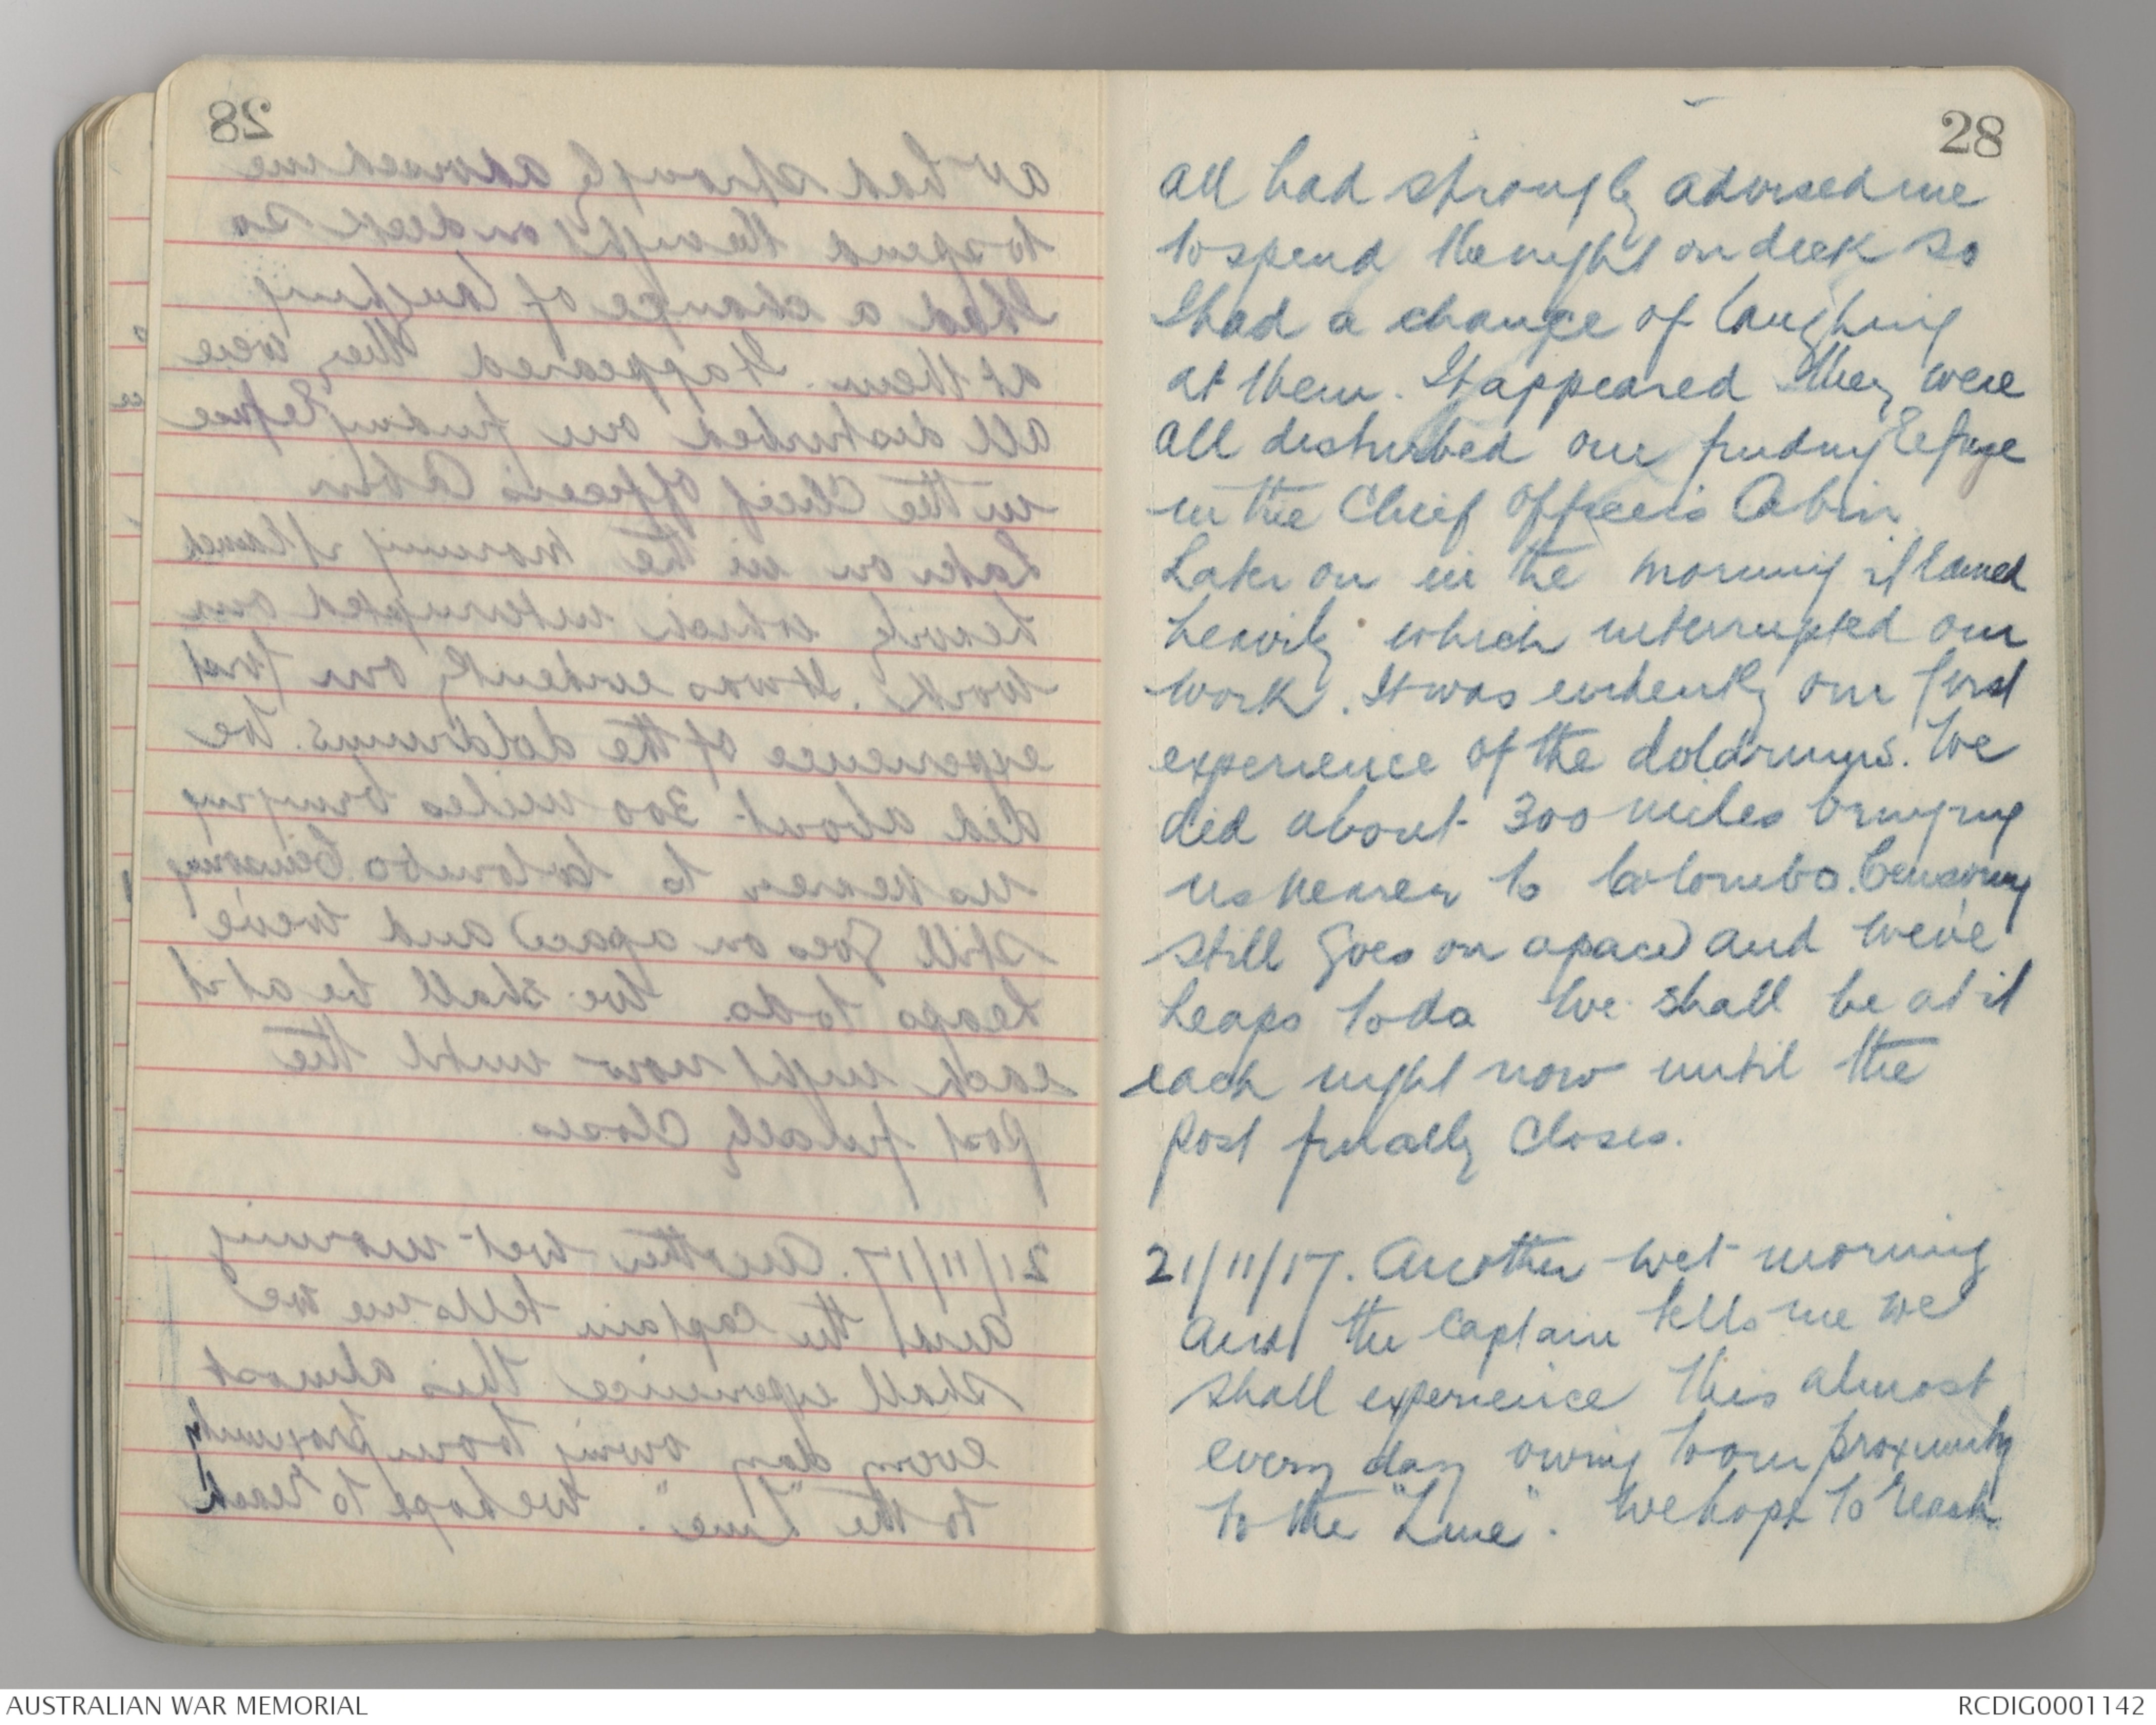 28
all had strongly advised me
to spend the night on deck so
I had a change of laughing
at them. It appeared they were
all disturbed one finding refuge
in the Chief Officer's Cabin
Later on in the morning it rained
heavily which interrupted our
work. It was evidently our first
experience of the doldrums. We
did about 300 miles bringing
us nearer to Colombo. Censoring
still goes on apace and we've
heaps to do We shall be at it
each night now until the
post finally closes.
21/11/17. Another wet morning
and the Captain tells me we
shall experience this almost
every day owing to our proximity
to the "Line". We hope to reach
AUSTRALIAN WAR MEMORIAL
RCDIG0001142